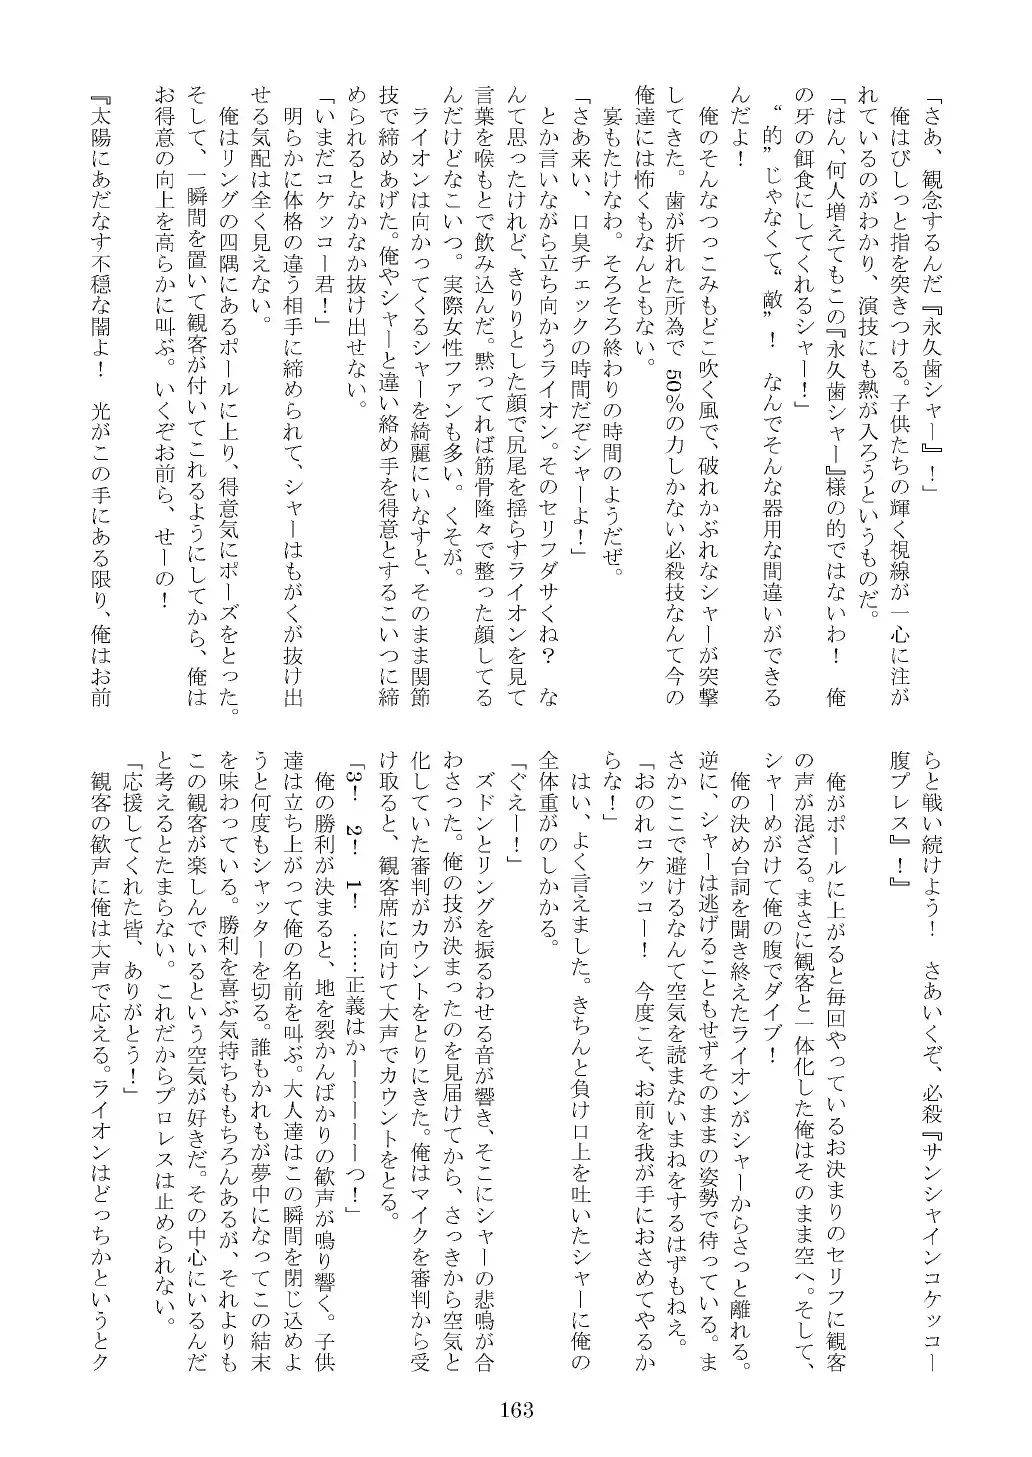 「さあ、観念するんだ『永久歯シャー』！」
　俺はびしっと指を突きつける。子供たちの輝く視線が一心に注が
れているのがわかり、演技にも熱が入ろうというものだ。
「はん、何人増えてもこの『永久歯シャー』様の的ではないわ！　俺
の牙の餌食にしてくれるシャー！」
　“的”じゃなくて“敵”！　なんでそんな器用な間違いができる
んだよ！
　俺のそんなつっこみもどこ吹く風で、破れかぶれなシャーが突撃
してきた。歯が折れた所為で50%の力しかない必殺技なんて今の
俺達には怖くもなんともない。
　宴もたけなわ。そろそろ終わりの時間のようだぜ。
「さあ来い、口臭チェックの時間だぞシャーよ！」
　とか言いながら立ち向かうライオン。そのセリフダサくね？　な
んて思ったけれど、きりりとした顔で尻尾を揺らすライオンを見て
言葉を喉もとで飲み込んだ。黙ってれば筋骨隆々で整った顔してる
んだけどなこいつ。実際女性ファンも多い。くそが。
　ライオンは向かってくるシャーを綺麗にいなすと、そのまま関節
技で締めあげた。俺やシャーと違い絡め手を得意とするこいつに締
められるとなかなか抜け出せない。
「いまだコケッコー君！」
　明らかに体格の違う相手に締められて、シャーはもがくが抜け出
せる気配は全く見えない。
　俺はリングの四隅にあるポールに上り、得意気にポーズをとった。
そして、一瞬間を置いて観客が付いてこれるようにしてから、俺は
お得意の向上を高らかに叫ぶ。いくぞお前ら、せーの！
『太陽にあだなす不穏な闇よ！　光がこの手にある限り、俺はお前
らと戦い続けよう！　さあいくぞ、必殺『サンシャインコケッコー
腹プレス』！』
　俺がポールに上がると毎回やっているお決まりのセリフに観客
の声が混ざる。まさに観客と一体化した俺はそのまま空へ。そして、
シャーめがけて俺の腹でダイブ！
　俺の決め台詞を聞き終えたライオンがシャーからさっと離れる。
逆に、シャーは逃げることもせずそのままの姿勢で待っている。ま
さかここで避けるなんて空気を読まないまねをするはずもねえ。
「おのれコケッコー！　今度こそ、お前を我が手におさめてやるか
らな！」
　はい、よく言えました。きちんと負け口上を吐いたシャーに俺の
全体重がのしかかる。
「ぐえー！」
　ズドンとリングを振るわせる音が響き、そこにシャーの悲鳴が合
わさった。俺の技が決まったのを見届けてから、さっきから空気と
化していた審判がカウントをとりにきた。俺はマイクを審判から受
け取ると、観客席に向けて大声でカウントをとる。
「3！　2！　1！　……正義はかーーーーーつ！」
　俺の勝利が決まると、地を裂かんばかりの歓声が鳴り響く。子供
達は立ち上がって俺の名前を叫ぶ。大人達はこの瞬間を閉じ込めよ
うと何度もシャッターを切る。誰もかれもが夢中になってこの結末
を味わっている。勝利を喜ぶ気持ちももちろんあるが、それよりも
この観客が楽しんでいるという空気が好きだ。その中心にいるんだ
と考えるとたまらない。これだからプロレスは止められない。
「応援してくれた皆、ありがとう！」
　観客の歓声に俺は大声で応える。ライオンはどっちかというとク
163